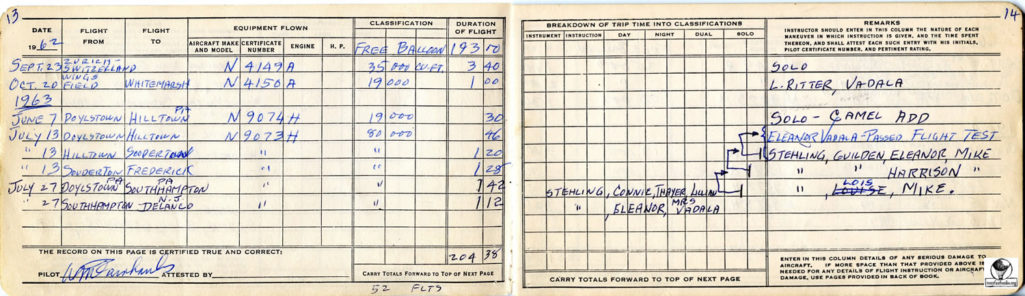 13
DATE
1962
FLIGHT FROM
FLIGHT TO
EQUIPMENT FLOWN
AIRCRAFT MAKE AND MODEL
CERTIFICATE NUMBER
ENGINE
H. P.
CLASSIFICATION
DURATION OF FLIGHT
FREE BALLOON 193 10
SEPT. 23 ZURICH - SWITZERLAND N 4149A 35 000 CU.FT. 3 40
OCT. 20 WINGS FIELD WHITEMARSH N 4150A 19000 1 00
1963
JUNE 7 DOYLSTOWN HILLTOWN PA N 9074H 19000 30
JULY 13 DOYLSTOWN HILLTOWN N 9073H 80 000 46
" 13 HILLTOWN SODERTOWN " " 1 20
" 13 SOUDERTON FREDERICK " " 1 28
JULY 27 DOYLSTOWN PA SOUTHHAMPTON PA " " 1 42
" 27 SOUTHHAMPTON DELANCO N.J. " " 1 12
THE RECORD ON THIS PAGE IS CERTIFIED TRUE AND CORRECT:
204 38
PILOT
ATTESTED BY
CARRY TOTALS FORWARD TO TOP OF NEXT PAGE
52 FLTS
14
BREAKDOWN OF TRIP TIME INTO CLASSIFICATIONS
INSTRUMENT
INSTRUCTION
DAY
NIGHT
DUAL
SOLO
REMARKS
INSTRUCTOR SHOULD ENTER IN THIS COLUMN THE NATURE OF EACH
MANEUVER IN WHICH INSTRUCTION IS GIVEN, AND THE TIME SPENT
THEREON, AND SHALL ATTEST EACH SUCH ENTRY WITH HIS INITIALS,
PILOT CERTIFICATE NUMBER, AND PERTINENT RATING.
SOLO
L. RITTER, VADALA
SOLO - CAMEL ADD
ELEANOR VADALA - PASSED FLIGHT TEST
STEHLING, GUILDEN, ELEANOR, MIKE
" " HARRISON "
STEHLING, CONNIE, THAYER, LILLIAN " " LOUISE LOIS, MIKE.
" , ELEANOR, MRS VADALA
CARRY TOTALS FORWARD TO TOP OF NEXT PAGE
ENTER IN THIS COLUMN DETAILS OF ANY SERIOUS DAMAGE TO
AIRCRAFT. IF MORE SPACE THAN THAT PROVIDED ABOVE IS
NEEDED FOR ANY DETAILS OF FLIGHT INSTRUCTION OR AIRCRAFT
DAMAGE, USE PAGES PROVIDED IN BACK OF BOOK.